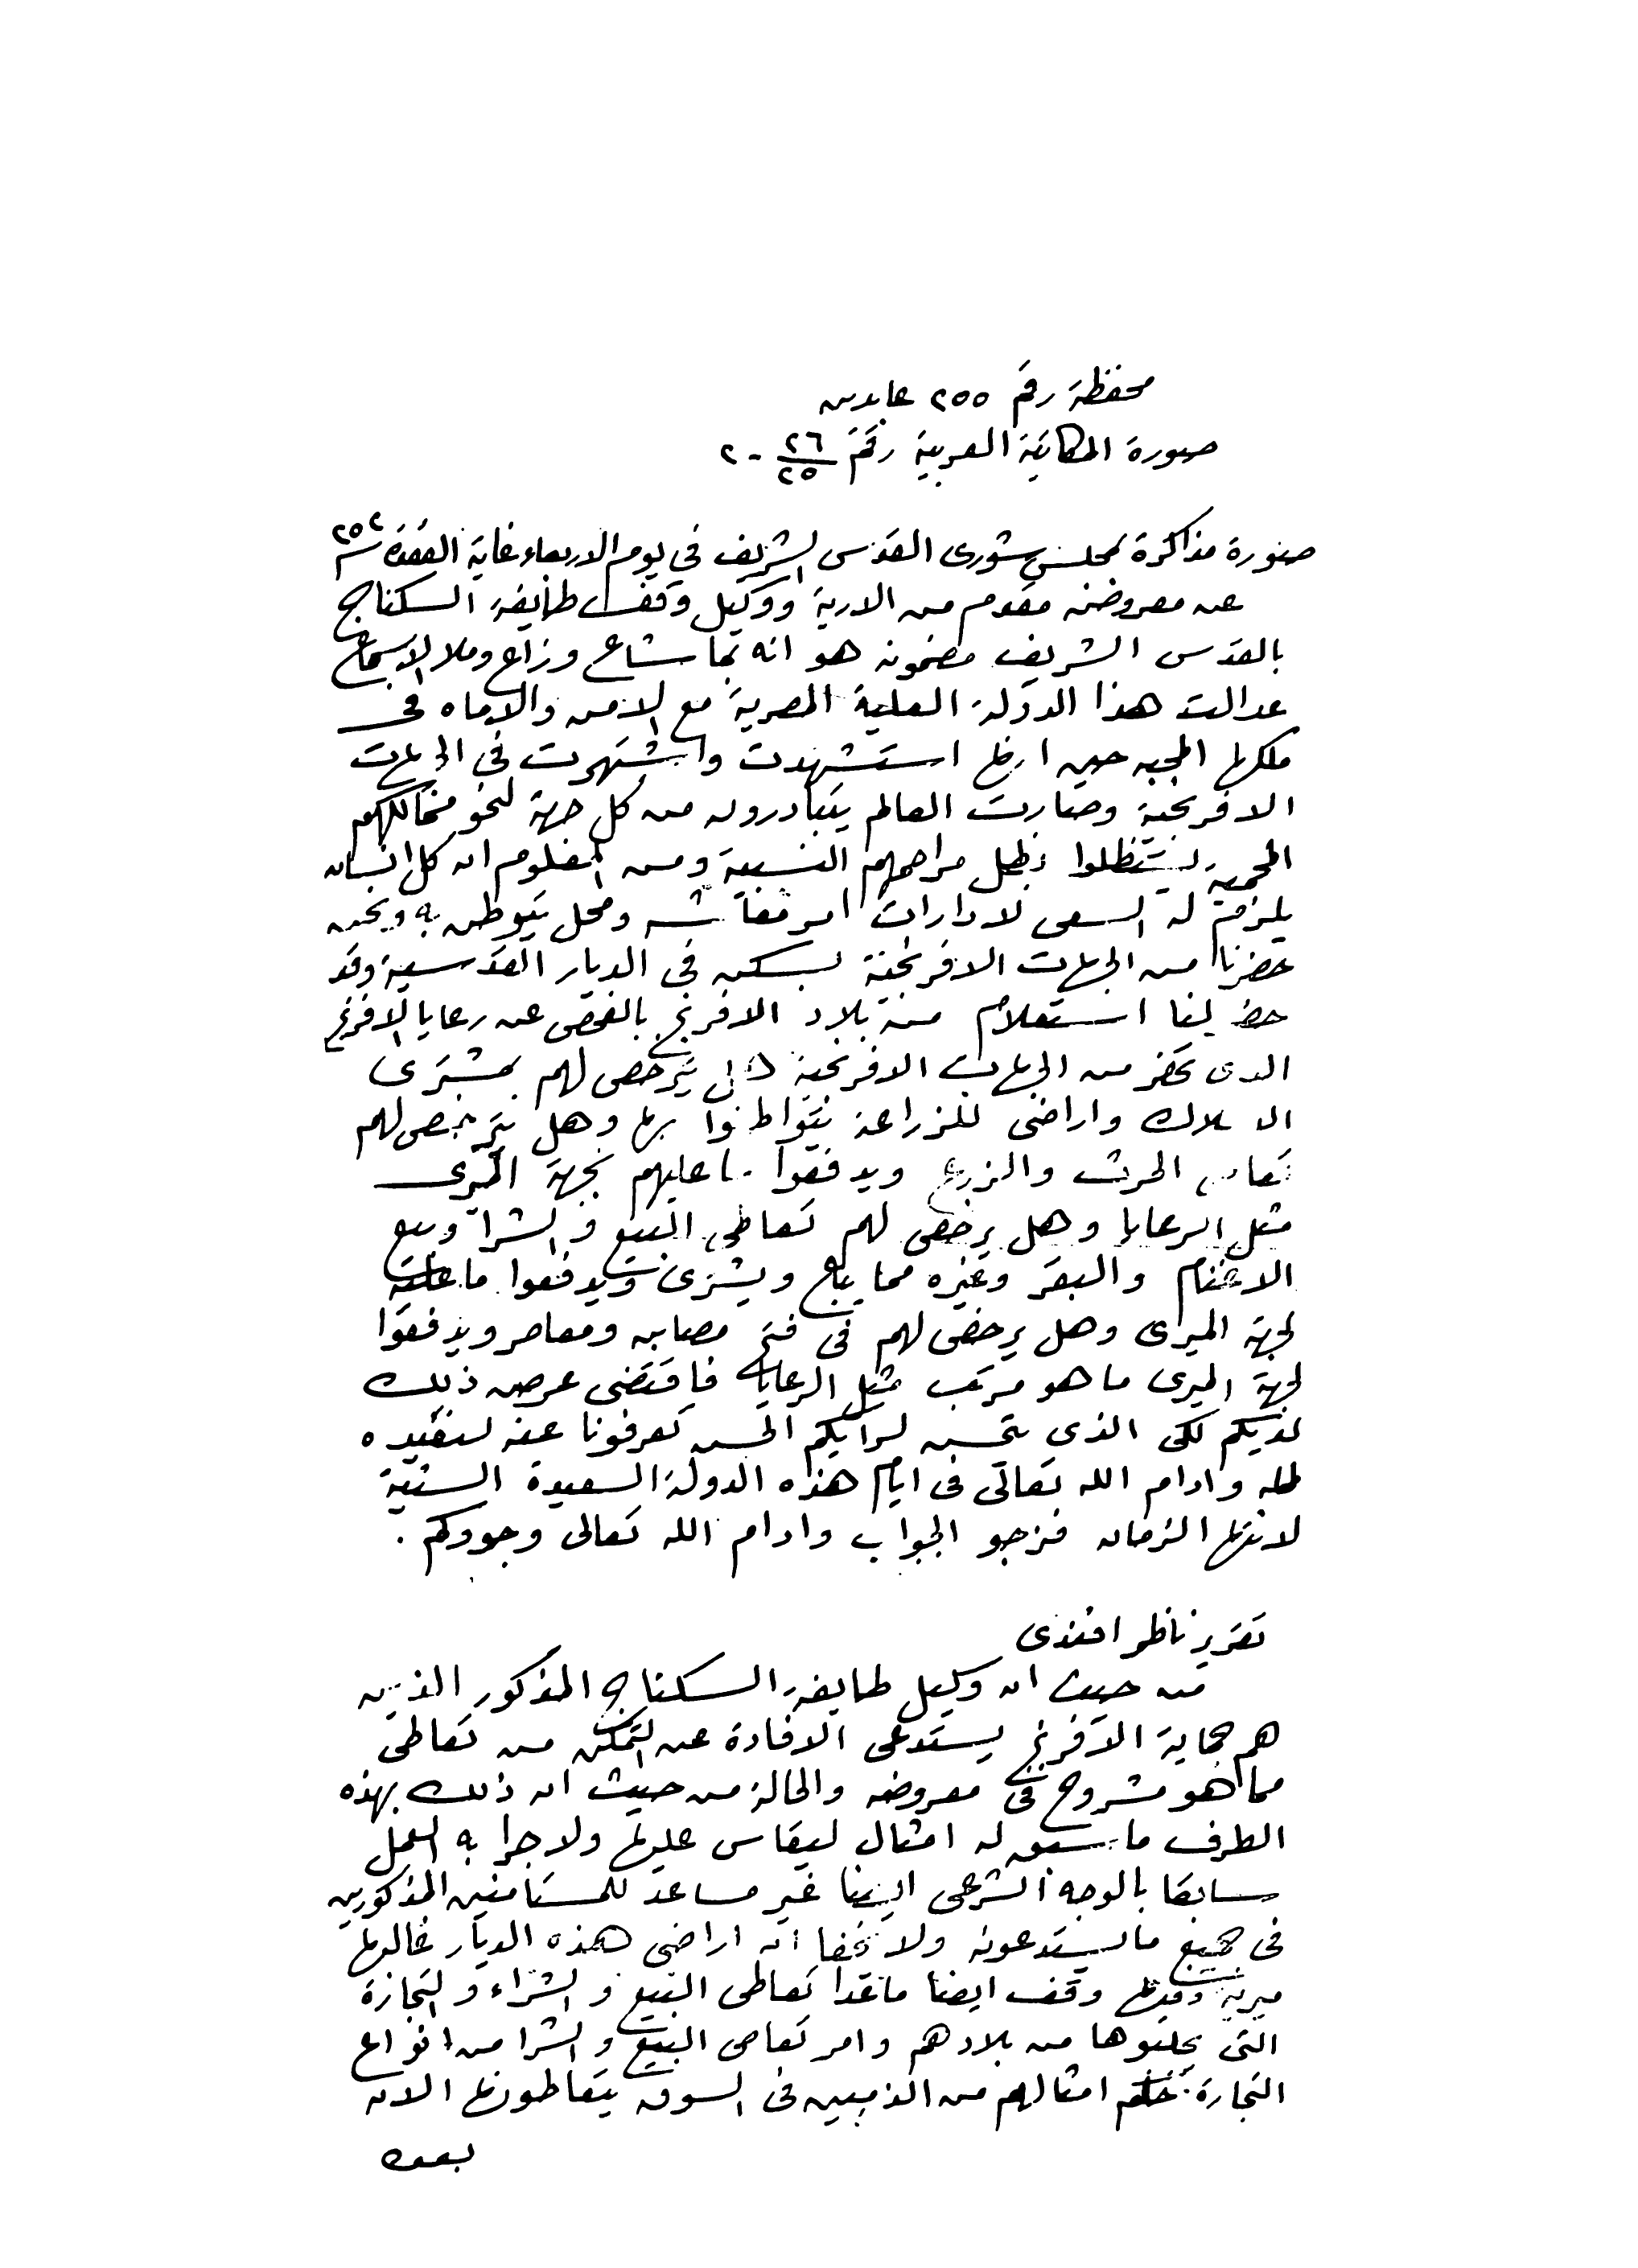 محفظة رقم ٢٥٥ عابدين
صورة المكاتبة العربية رقم ٢٦/٢٥ - ٢
صورة مذاكرة مجلس شورى القدس الشريف في يوم الاربعاء غاية القعدة سنة ٢٥٢
عن معروض مقدم من الادرية ووكيل وقف طايفة السكناج
بالقدس الشريف مضمونه هو انه بما شاع وزاع وملا الاسماع
عدالت هذا الدولة العلية المصرية مع الامن والامان في
ملكها حين ارها استشهدت واشتهرت في الجهات
الافرنجية وصارت العالم يتبادرون من كل جهة لنحو ممالكهم
المحمية ليستظلوا بظل مراحمهم ومن المعلوم ان كل انسان
يلزم له السعى لادارات امر معاشه ومحل يتوطن به ونحن
حضرنا من الجهات الافرنجية لسكن في الديار القدسية وقد
حضر لينا استعلام من بلاد الافرنج بالفحص عن رعايا الافرنج
الذى تحضر من الجهات الافرنجية هل يترخص لهم بمشترى
املاك واراضى للزراعة يتواطنوا بها وهل يترخص لهم
تعاطى الحرث والزرع ويدفعوا ما عليهم بجهة الميرى
مثل الرعايا وهل يرخص لهم تعاطى البيع والشرا وبيع
الاغنام والبقر وغيره مما يباع ويشترى ويدفعوا ما عليه
لجهة الميرى وهل يرخص لهم فى فتح مصابن ومعاصر ويدفعوا
لجهة الميرى ما هو مرتب مثل الرعايا فاقتضى عرض ذلك
لديكم لكى الذى يحسن لرأيكم الحسن تعرفونا عنه لنفيده
له وادام الله تعالى فى ايام هذه الدولة السعيدة السنية
لانتها الزمان فنرجو الجواب وادام الله تعالى وجودكم .
تقرير ناظر افندى
من حيث ان وكيل طايفة السكناج المذكور الذين
هم حماية الافرنج يستدعى الافادة عن التمكن من تعاطى
مما هو مشروح فى معروضه والحالة من حيث ان ذلك بهذه
الطرف ما سبق له امثال ليقاس عليها ولا جرا به العمل
سابقا بالوجه الشرعى ايضا غير مساعد للمستأمنين المذكورين
فى جميع ما يستدعونه ولا يخفا ان اراضى هذه الديار غالبها
ميرية وفيها وقف ايضا ماعدا تعاطى البيع والشراء والتجارة
التى يجلبوها من بلادهم وامر تعاطى البيع والشرا من انواع
التجارة امثالهم من الذميين فى السوق يتعاطونها الان